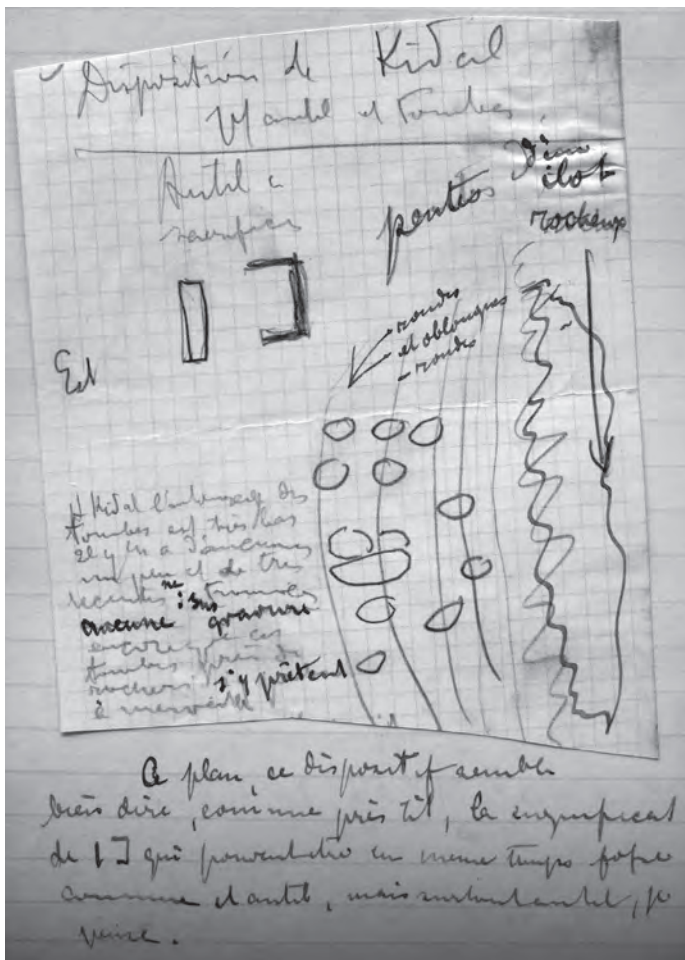 Disposition de Kidal
autel et tombes
Autel à
sacrifices
pentes d'un
ilot
rocheux
rondes
et oblongues
rondes
Est
A Kidal l'ensemble des
tombes est très bas
Il y en a d'anciennes
un peu et de très
récentes ne
aucune gravure
encore que ces
tombes près de
rochers s'y prêtent
à merveille
Ce plan, ce dispositif semble
bien dire, comme près Tit, la
de qui en même temps
comme et autel, mais surtout autel, je
pense.